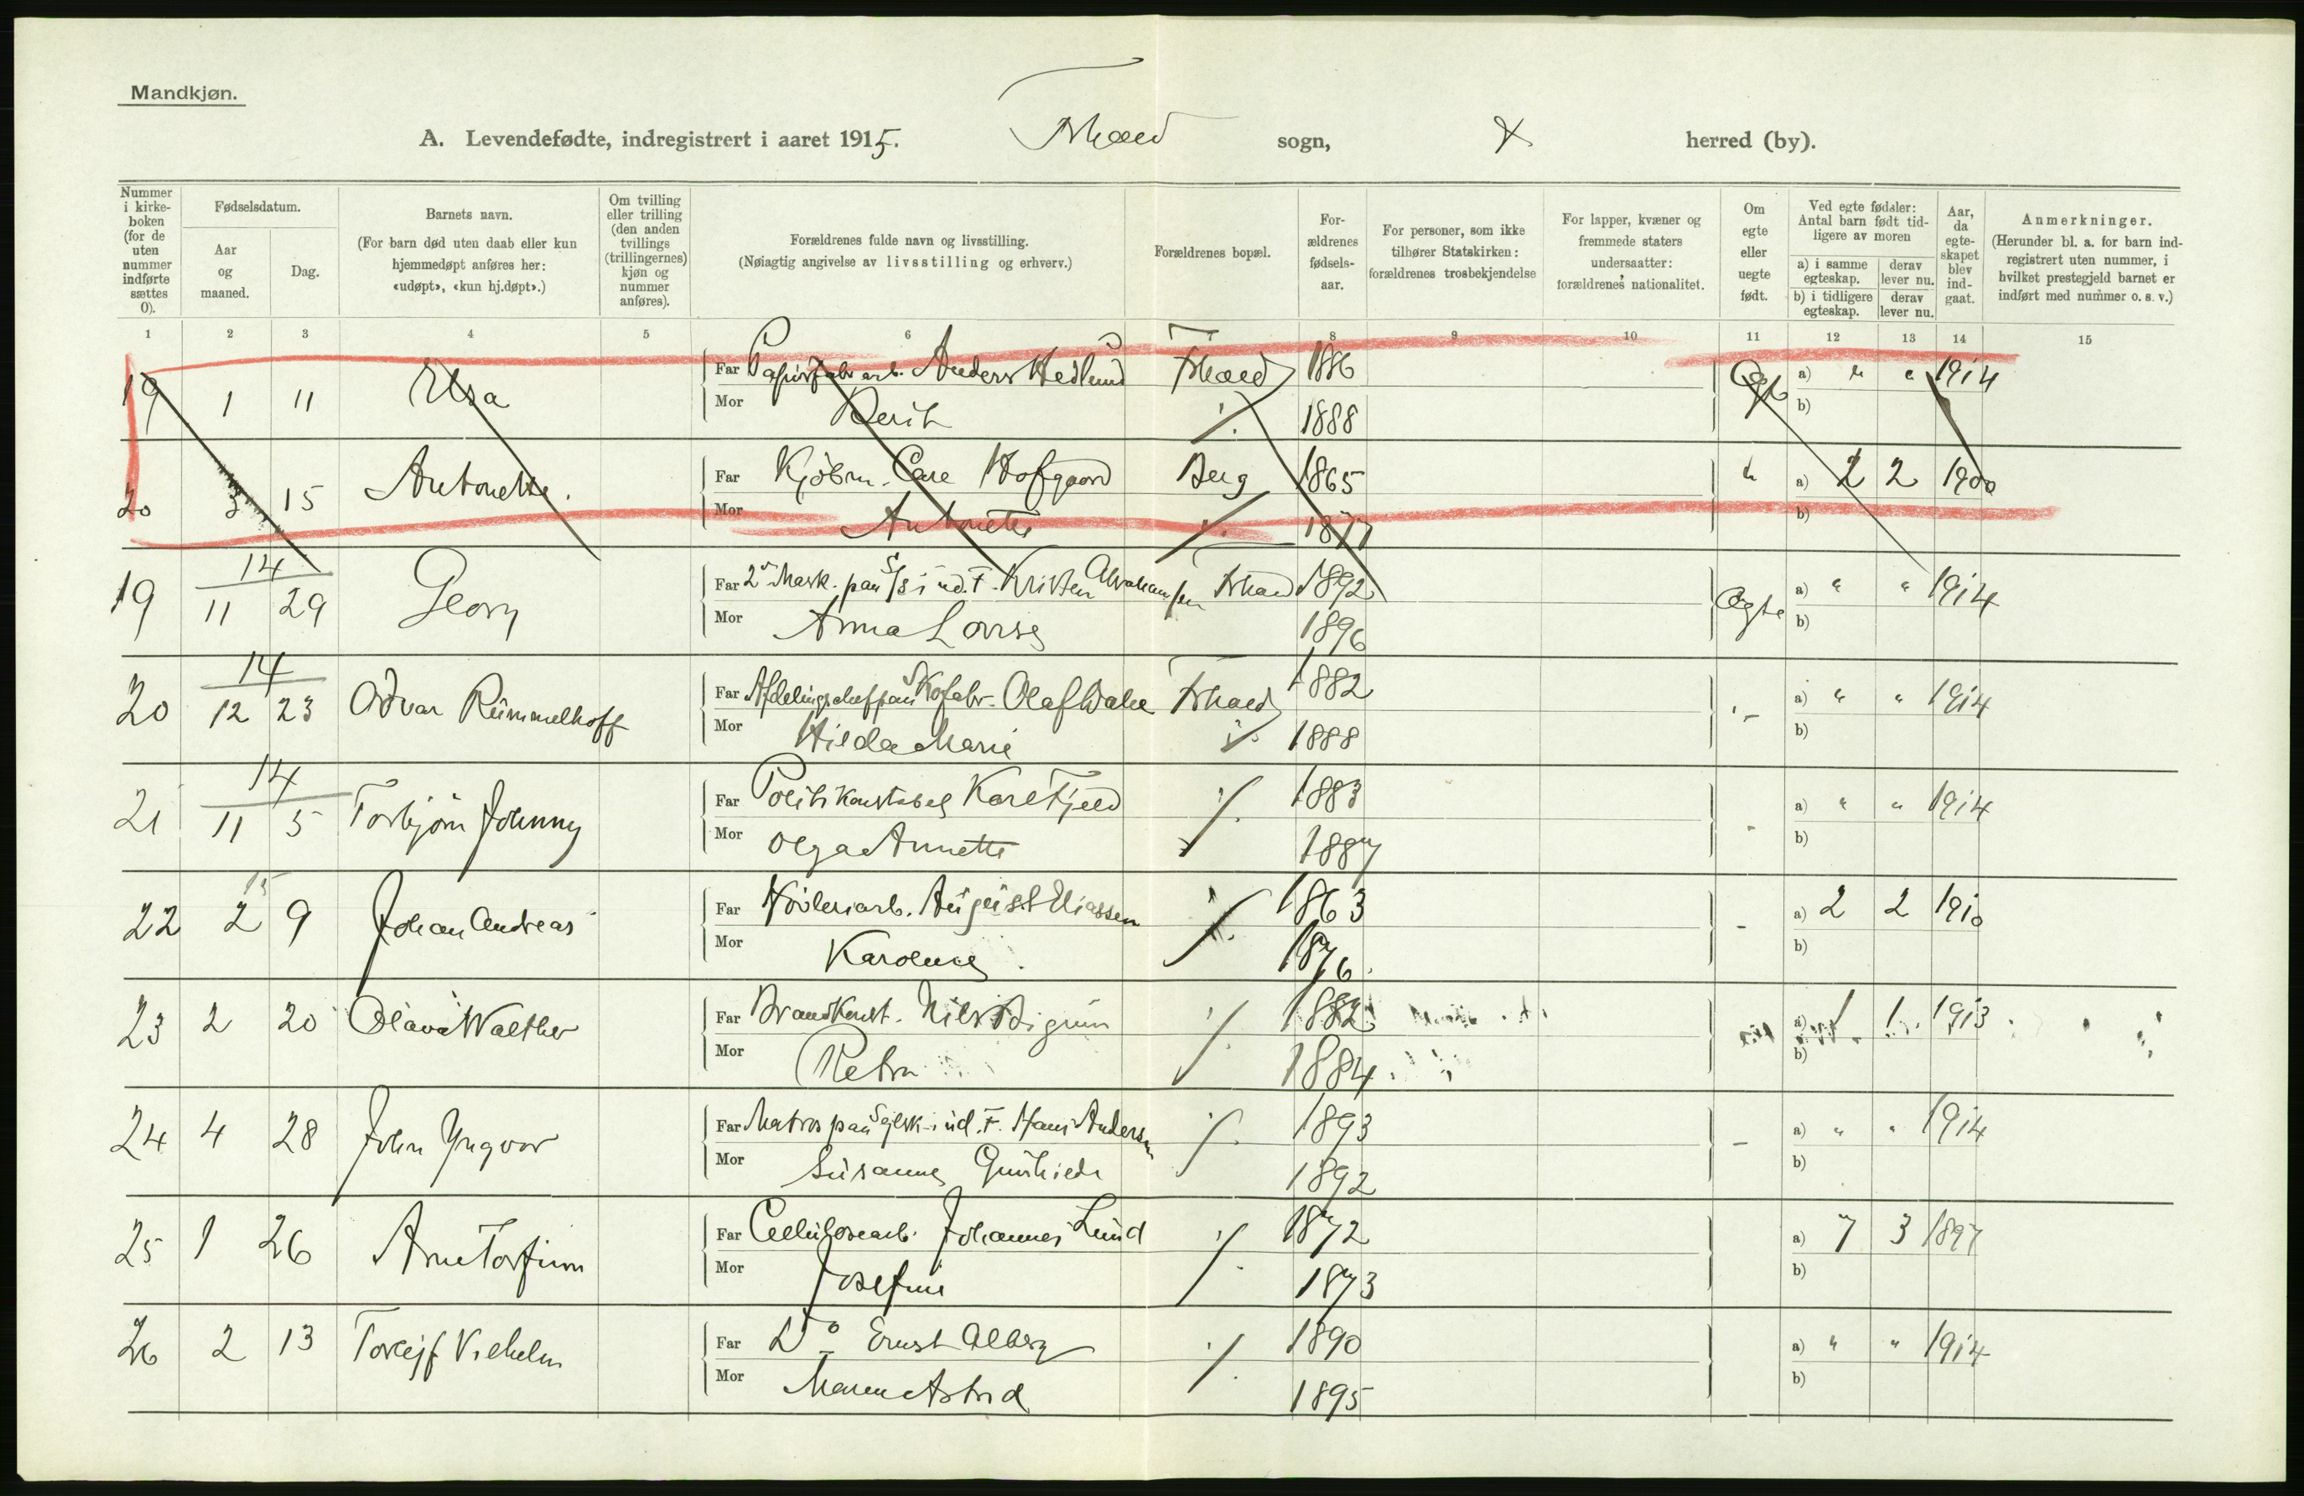 Mandkjøn.
A. Levendefødte, indregistrert i aaret 1915. Frhald sogn, herred (by).
Nummer i kirkeboken (for de uten nummer indførte sættes 0).
Fødselsdatum.
Aar og maaned.
Dag.
Barnets navn.
(For barn død uten daab eller kun hjemmedøpt anføres her: «udøpt», «kun hj.døpt».)
Om tvilling eller trilling (den anden tvillings (trillingernes) kjøn og nummer anføres).
Forældrenes fulde navn og livsstilling.
(Nøiagtig angivelse av livsstilling og erhverv.)
Forældrenes bopæl.
Forældrenes fødselsaar.
For personer, som ikke tilhører Statskirken: forældrenes trosbekjendelse
For lapper, kvæner og fremmede staters undersaatter: forældrenes nationalitet.
Om egte eller uegte født.
Ved egte fødsler: Antal barn født tidligere av moren
a) i samme egteskap. derav lever nu.
b) i tidligere egteskap. derav lever nu.
Aar, da egteskapet blev indgaat.
Anmerkninger.
(Herunder bl. a. for barn indregistrert uten nummer, i hvilket prestegjeld barnet er indført med nummer o. s. v.)
1 2 3 4 5 6 7 8 9 10 11 12 13 14 15
19 1 11 Elsa Far Papirfabr arb. Anders Hedlund Frhald 1886 Egte a) " " 1914
Mor Berit 1888 b)
20 3 15 Antonette. Far Kjøbm. Carl Hofgaard Berg 1865 " a) 2 2 1900
Mor Antonette 1877 b)
19 14/11 29 Georg Far 2n Mask. paa S/S i ud. F. Kristen Abrahamsen Frhald 1892 Egte a) " " 1914
Mor Anna Lovise 1896 b)
20 14/12 23 Odvar Rummelhoff Far Afdelingschef paa Skofabr. Olaf Dahl Frhald 1882 a) " " 1914
Mor Hilda Marie 1888 b)
21 14/11 5 Torbjørn Johnny Far Politikonstabel Karl Fjeld 1883 a) " " 1914
Mor Olga Annette 1887 b)
22 15 2 9 Johan Andreas Far Høvleriarb. August Eliassen 1863 a) 2 2 1910
Mor Karoline 1876 b)
23 2 20 Olav Walther Far Brandkonst. Nils 1882 a) 1 1 1913
Mor Petra 1884 b)
24 4 28 John Yngvar Far Matros paa Sejlsk. i ud. F. Hans Andersen 1893 – a) " " 1914
Mor Susanne 1892 b)
25 1 26 Arne Torfinn Far Cellulosearb. Johannes Lund 1872 a) 7 3 1897
Mor Josefine 1873 b)
26 2 13 Torleif Vilhelm Far Do Ernst Alberg 1890 a) " " 1914
Mor Maren Astrid 1895 b)